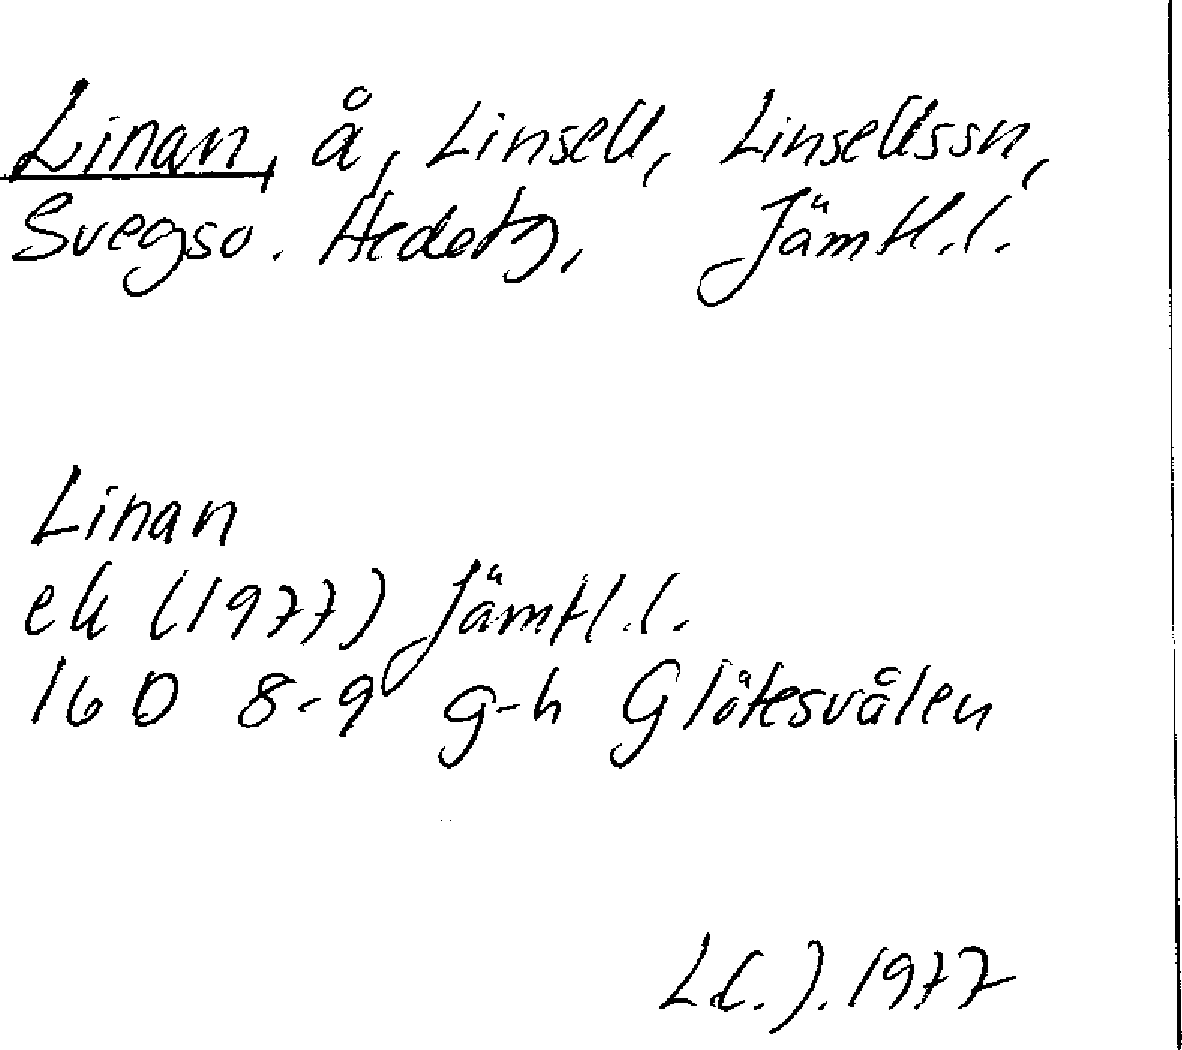 Linan, å, Linsell, Linsellssn,
Svegso. Hedetg, Jämtl.l.
Linan
ek (1977) Jämtl.l.
16D 8-9 g-h Glötesvålen
1977